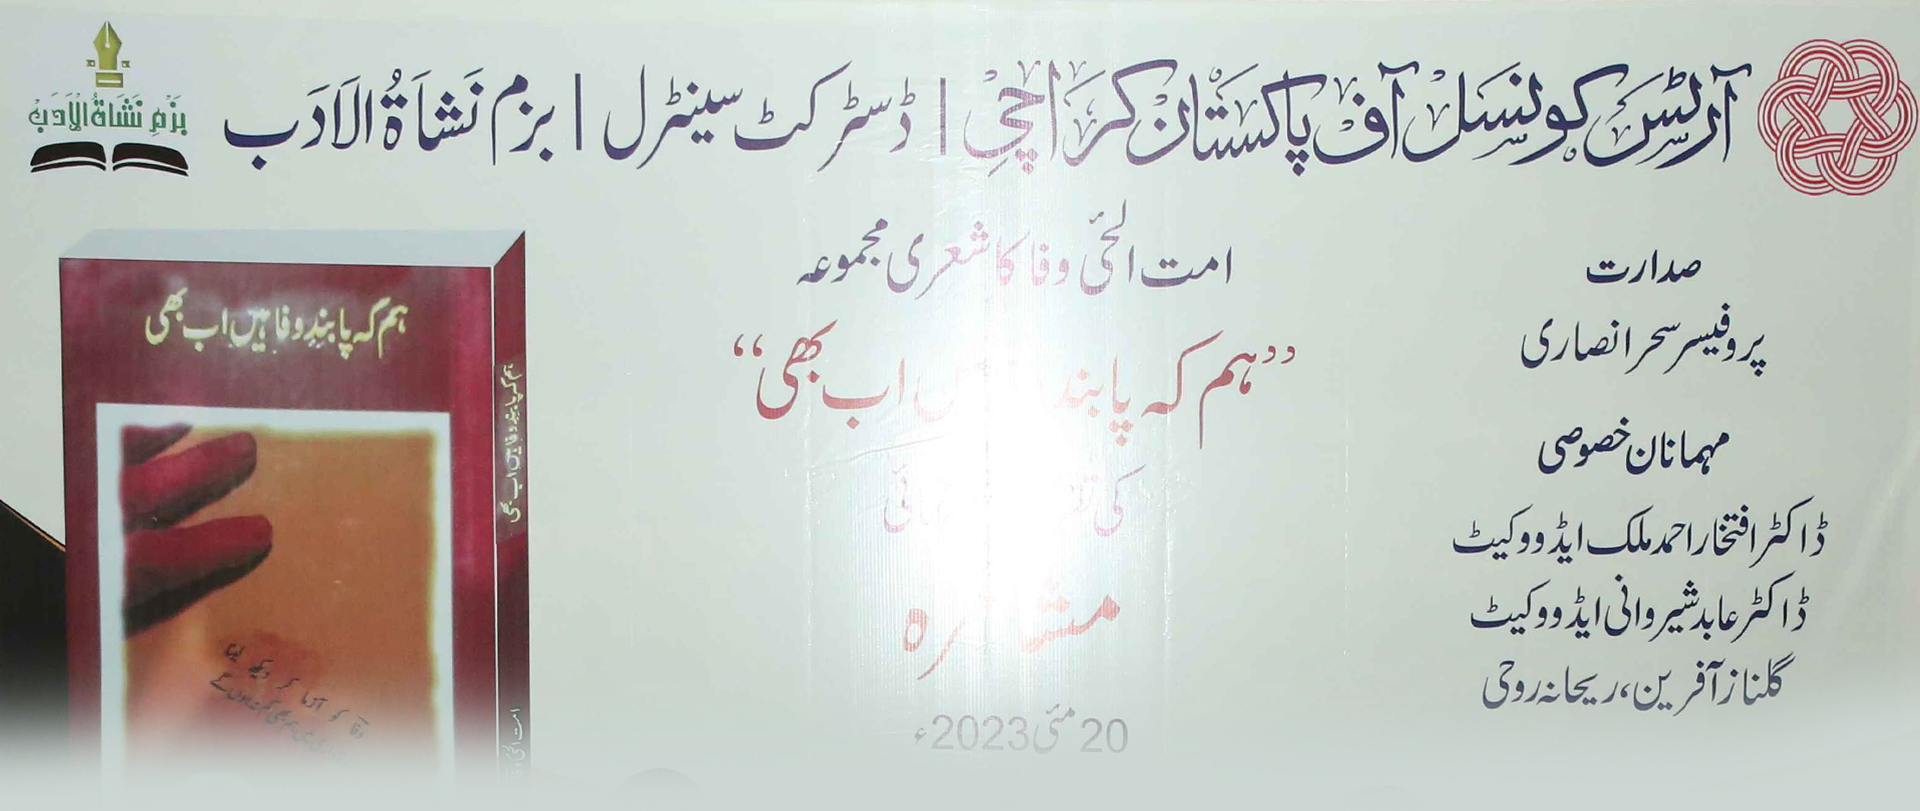 آرٹس کونسل آف پاکستان کراچی | ڈسٹرکٹ سینٹرل | بزم نَشَاۃُ الاَدَب
بَزمِ نَشَاۃُ الْاَدَبْ
صدارت
پروفیسر سحر انصاری
مہمانان خصوصی
ڈاکٹر افتخار احمد ملک ایڈووکیٹ
ڈاکٹر عابد شیروانی ایڈووکیٹ
گلناز آفرین، ریحانہ روحی
امت الحئی وفا کا شعری مجموعہ
”ہم کہ پابند اب بھی“
کی
مشاعرہ
20 مئی 2023ء
ہم کہ پابندِ وفا ہیں اب بھی
وفا کو آزما کر دیکھ لینا
ہم کہ پابندِ وفا ہیں اب بھی